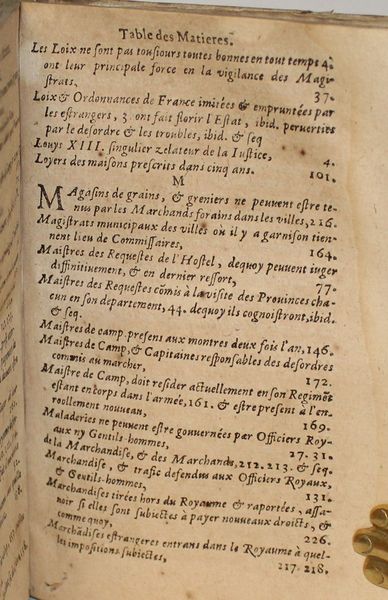 Table des Matieres.
Les Loix ne sont pas tousiours toutes bonnes en tout temps 4.
ont leur principale force en la vigilance des Magi-
strats, 37.
Loix & Ordonnances de France imitées & empruntées par
les estrangers, 3. ont fait florir l'Estat, ibid. peruerties
par le desordre & les troubles, ibid. & seq
Louys XIII. singulier zelateur de la Iustice, 4.
Loyers des maisons prescrits dans cinq ans. 101.
M
MAgasins de grains, & greniers ne peuuent estre te-
nus par les Marchands forains dans les villes, 216.
Magistrats municipaux des villes où il y a garnison tien-
nent lieu de Commissaires, 164.
Maistres des Requestes de l'Hostel, dequoy peuuent iuger
diffinitiuement, & en dernier ressort, 77.
Maistres des Requestes cõmis à la visite des Prouinces cha-
cun en son departement, 44. dequoy ils cognoistront, ibid.
& seq.
Maistres de camp presens aux montres deux fois l'an, 146.
Maistres de Camp, & Capitaines responsables des desordres
commis au marcher, 172.
Maistre de Camp, doit resider actuellement en son Regimẽt
estant en corps dans l'armée, 161. & estre present à l'en-
roollement nouueau, 169.
Maladeries ne peuuent estre gouuernées par Officiers Roy-
aux ny Gentils-hommes, 27. 31.
de la Marchandise, & des Marchands, 212. 213. & seq.
Marchandise, & trafic defendus aux Officiers Royaux,
& Gentils-hommes, 131.
Marchandises tirées hors du Royaume & raportées, assa-
uoir si elles sont subiectes à payer nouueaux droicts, &
comme quoy, 226.
Marchãdises estrangeres entrans dans le Royaume à quel-
les impositions subiectes, 217. 218.